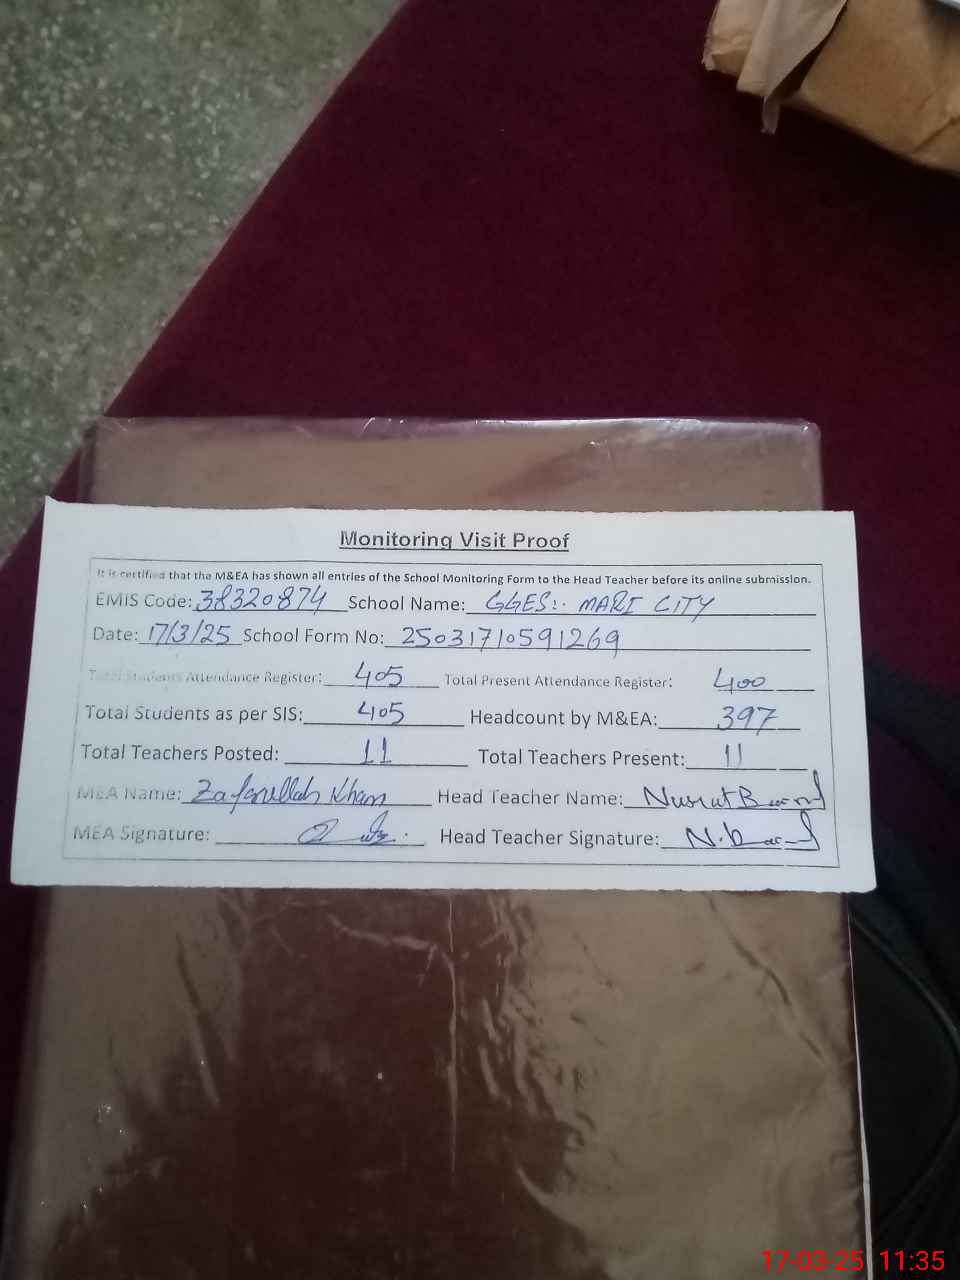 Monitoring Visit Proof
It is certified that the M&EA has shown all entries of the School Monitoring Form to the Head Teacher before its online submission.
EMIS Code: 38320874 School Name: GGES:. MARI CITY
Date: 17/3/25 School Form No: 25031710591269
Total Students Attendance Register: 405 Total Present Attendance Register: 400
Total Students as per SIS: 405 Headcount by M&EA: 397
Total Teachers Posted: 11 Total Teachers Present: 11
M&A Name: Zafarullah Khan Head Teacher Name: Nusrat
MEA Signature: Head Teacher Signature: N.
17-03-25 11:35